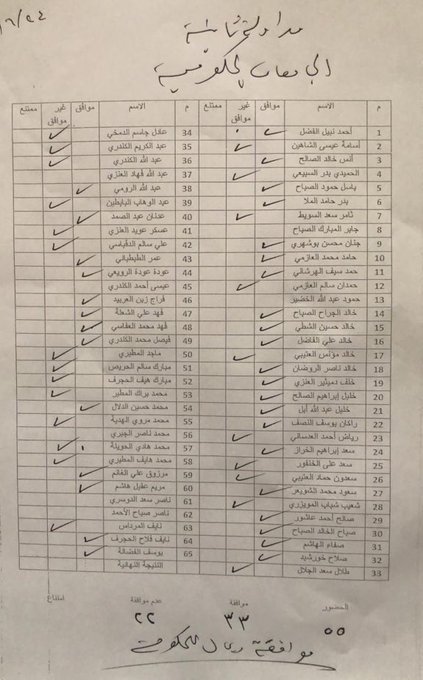 ١٦/٢٤
مداولة ثانية
الجامعات الحكومية
م الاسم موافق غير موافق ممتنع
1 أحمد نبيل الفضل
2 أسامة عيسى الشاهين
3 أنس خالد الصالح
4 الحميدي بدر السبيعي
5 باسل حمود الصباح
6 بدر حامد الملا
7 ثامر سعد السويط
8 جابر المبارك الصباح
9 جنان محسن بوشهري
10 حامد محمد العازمي
11 حمد سيف الهرشاني
12 حمدان سالم العازمي
13 حمود عبد الله الخضير
14 خالد الجراح الصباح
15 خالد حسين الشطي
16 خالد علي الفاضل
17 خالد مؤنس العتيبي
18 خالد ناصر الروضان
19 خلف دميثير العنزي
20 خليل إبراهيم الصالح
21 خليل عبد الله أبل
22 راكان يوسف النصف
23 رياض أحمد العدساني
24 سعد إبراهيم الخراز
25 سعد علي الخنفور
26 سعدون حماد العتيبي
27 سعود محمد الشويعر
28 شعيب شباب المويزري
29 صالح أحمد عاشور
30 صباح الخالد الصباح
31 صفاء الهاشم
32 صلاح خورشيد
33 طلال سعد الجلال
م الاسم موافق غير موافق ممتنع
34 عادل جاسم الدمخي
35 عبد الكريم الكندري
36 عبد الله الكندري
37 عبد الله فهاد العنزي
38 عبد الله الرومي
39 عبد الوهاب البابطين
40 عدنان عبد الصمد
41 عسكر عويد العنزي
42 علي سالم الدقباسي
43 عمر الطبطبائي
44 عودة عودة الرويعي
45 عيسى أحمد الكندري
46 فراج زبن العربيد
47 فهد علي الشعلة
48 فهد محمد العفاسي
49 فيصل محمد الكندري
50 ماجد المطيري
51 مبارك سالم الحريص
52 مبارك هيف الحجرف
53 محمد براك المطير
54 محمد حسين الدلال
55 محمد مروي الهدية
56 محمد ناصر الجبري
57 محمد هادي الحويلة
58 محمد هايف المطيري
59 مرزوق علي الغانم
60 مريم عقيل هاشم
61 ناصر سعد الدوسري
62 ناصر صباح الأحمد
63 نايف المرداس
64 نايف فلاح الحجرف
65 يوسف الفضالة
النتيجة النهائية
الحضور موافقة عدم موافقة امتناع
٥٥ ٣٣ ٢٢
موافقة ويحال للحكومة